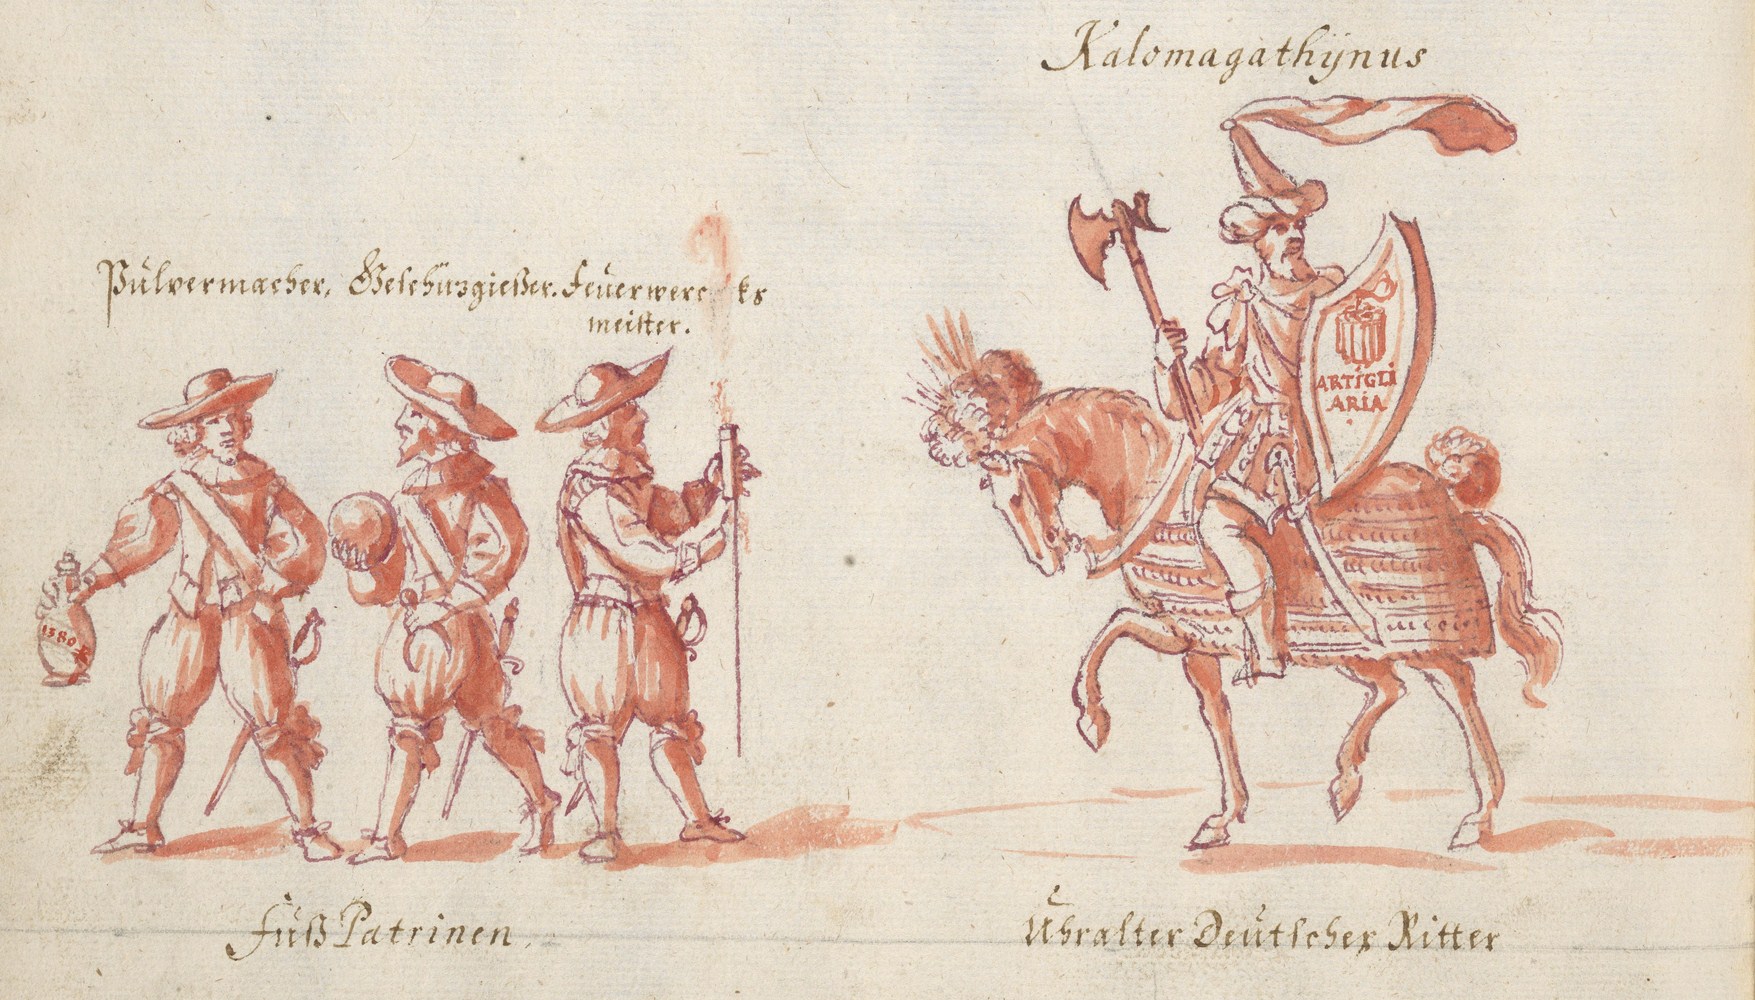 Kalomagathÿnus
Pulvermacher, Geschüzgießer. Feuerwercks
meister.
ARTIGLI
ARIA
1380
Fuß Patrinen.
Uhralter Deutscher Ritter